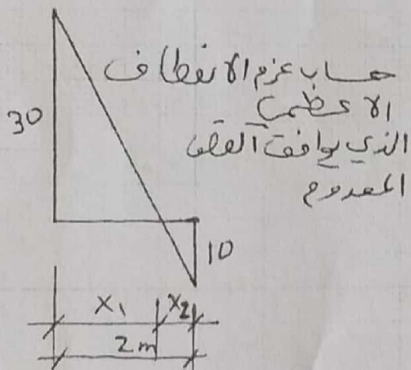 حساب عزم الانعطاف
الاعظمي
الذي يوافق القص
المعدوم
30
10
X1 X2
2m